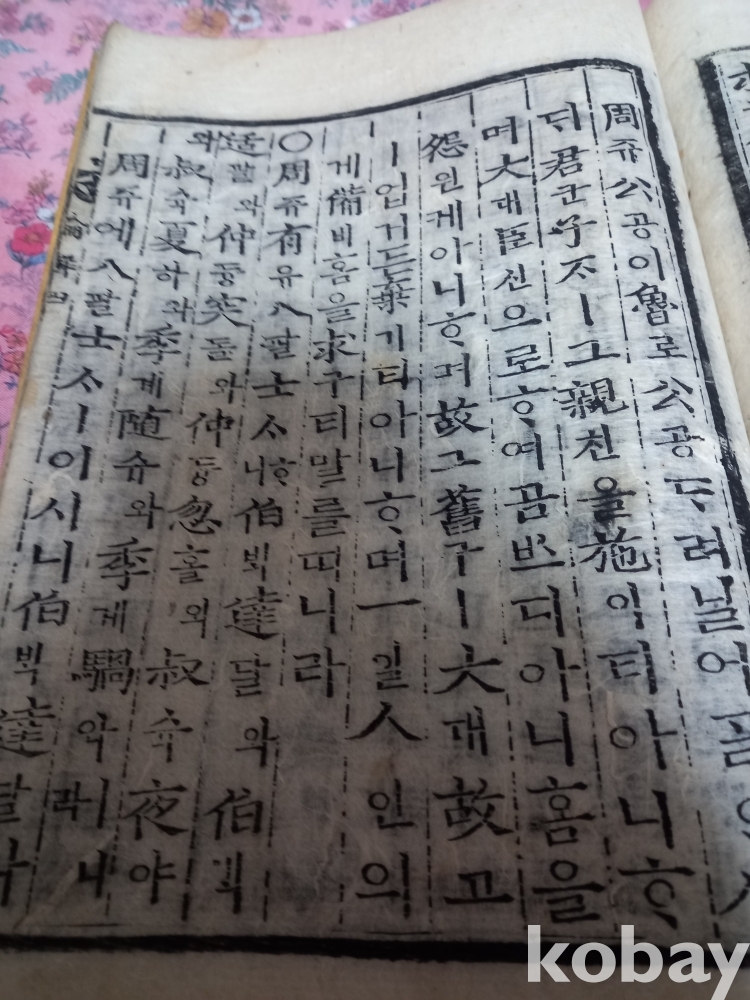 周쥬公공이魯로公공ᄃᆞ려닐어ᄀᆞᆯᄋᆞ샤
ᄃᆡ君군子ᄌᆞㅣ그親친을施이티아니ᄒᆞ
며大대臣신으로ᄒᆞ여곰ᄡᅳ디아니홈을
怨원게아니ᄒᆞ며故고舊구ㅣ大대故고
ㅣ업거든棄기티아니ᄒᆞ며一일人인의
게備비홈을求구티말를띠니라
○周쥬有유八팔士ᄉᆞᄒᆞ니伯ᄇᆡᆨ達달와伯ᄇᆡᆨ
适괄와仲듕突돌와仲듕忽홀와叔슉夜야
와叔슉夏하와季계隨슈와季계騧와러니
周쥬에八팔士ᄉᆞㅣ이시니伯ᄇᆡᆨ達달와
論解四
kobay